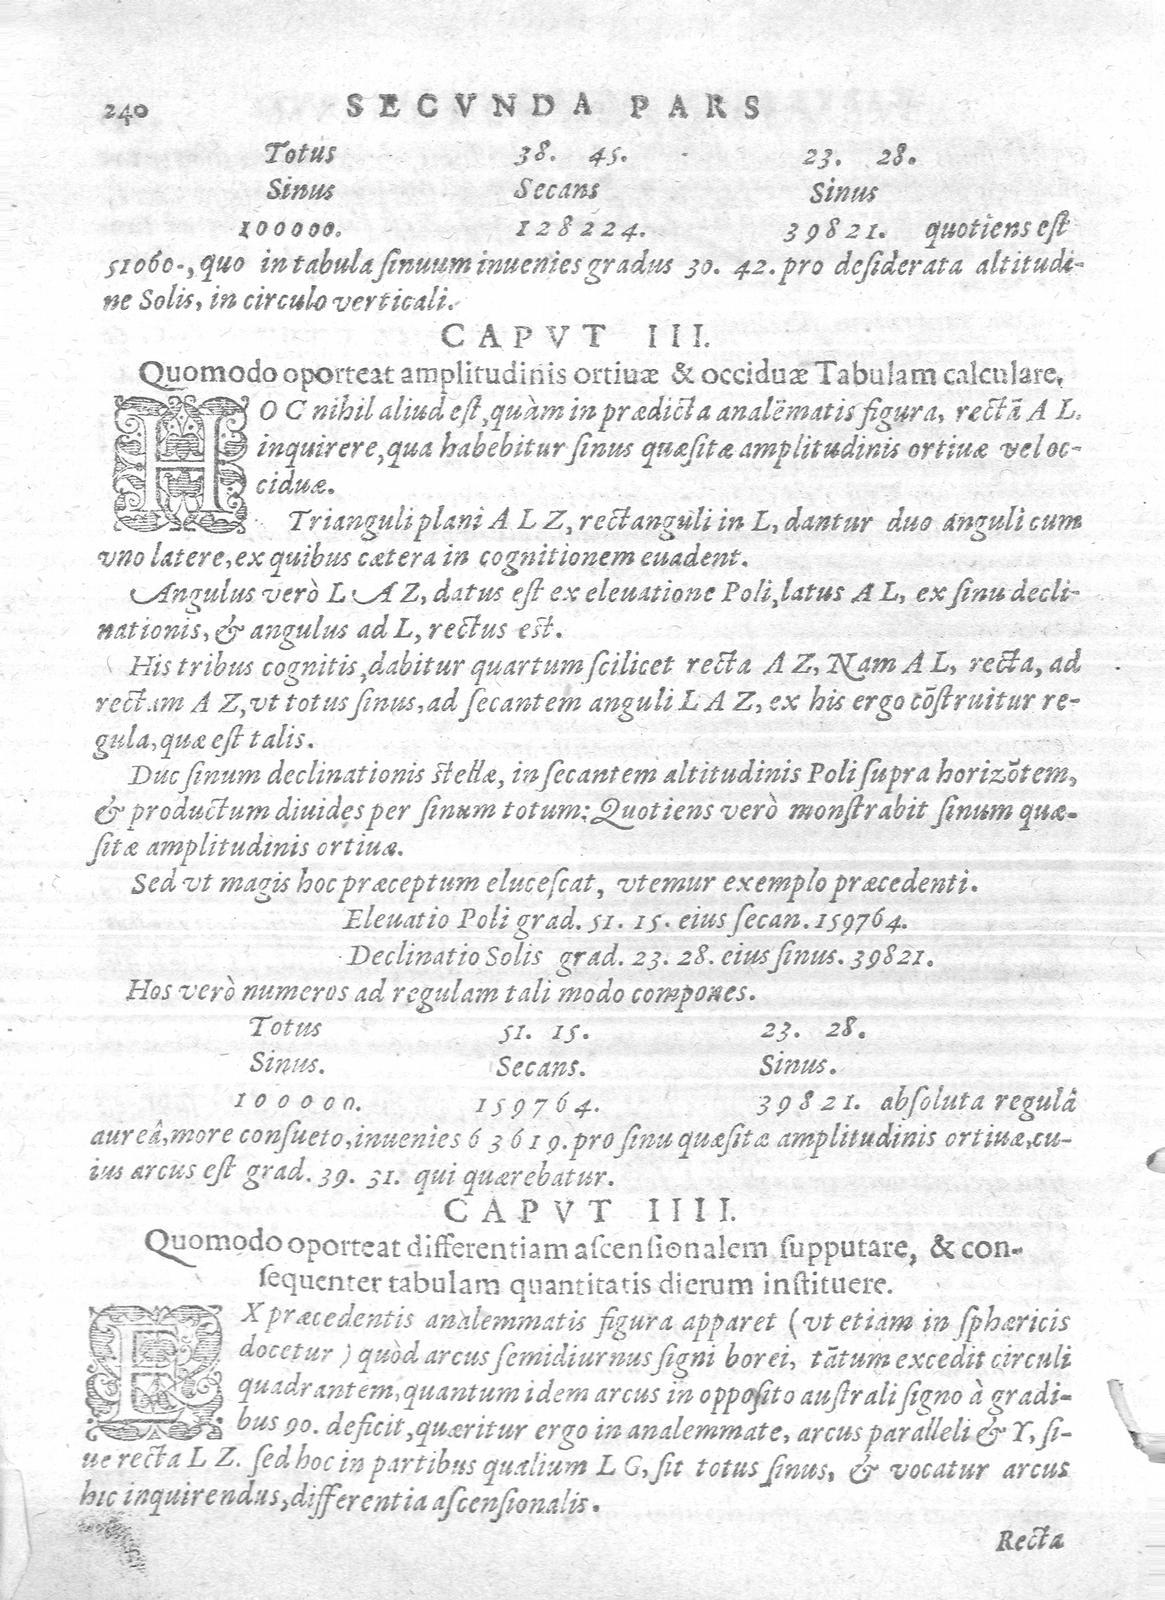 240 SECVNDA PARS
Totus 38. 45. 23. 28.
Sinus Secans Sinus
100000. 128224. 39821. quotiens est
51060., quo in tabula sinuum inuenies gradus 30. 42. pro desiderata altitudi-
ne Solis, in circulo verticali.
CAPVT III.
Quomodo oporteat amplitudinis ortiuæ & occiduæ Tabulam calculare.
HOC nihil aliud est, quàm in prædicta analëmatis figura, rectã A L.
inquirere, qua habebitur sinus quæsitæ amplitudinis ortiuæ vel oc-
ciduæ.
Trianguli plani A L Z, rectanguli in L, dantur duo anguli cum
vno latere, ex quibus cætera in cognitionem euadent.
Angulus verò L A Z, datus est ex eleuatione Poli, latus A L, ex sinu decli-
nationis, & angulus ad L, rectus est.
His tribus cognitis, dabitur quartum scilicet recta A Z, Nam A L, recta, ad
rectam A Z, vt totus sinus, ad secantem anguli L A Z, ex his ergo cõstruitur re-
gula, quæ est talis.
Duc sinum declinationis stellæ, in secantem altitudinis Poli supra horizõtem,
& productum diuides per sinum totum: Quotiens verò monstrabit sinum quæ-
sitæ amplitudinis ortiuæ.
Sed vt magis hoc præceptum elucescat, vtemur exemplo præcedenti.
Eleuatio Poli grad. 51. 15. eius secan. 159764.
Declinatio Solis grad. 23. 28. eius sinus. 39821.
Hos verò numeros ad regulam tali modo compones.
Totus 51. 15. 23. 28.
Sinus. Secans. Sinus.
100000. 159764. 39821. absoluta regulâ
aureâ, more consueto, inuenies 63619. pro sinu quæsitæ amplitudinis ortiuæ, cu-
ius arcus est grad. 39. 31. qui quærebatur.
CAPVT IIII.
Quomodo oporteat differentiam ascensionalem supputare, & con-
sequenter tabulam quantitatis dierum instituere.
EX præcedentis analemmatis figura apparet (vt etiam in sphæricis
docetur) quòd arcus semidiurnus signi borei, tãtum excedit circuli
quadrantem, quantum idem arcus in opposito australi signo à gradi-
bus 90. deficit, quæritur ergo in analemmate, arcus paralleli & Y, si-
ue recta L Z. sed hoc in partibus qualium L G, sit totus sinus, & vocatur arcus
hic inquirendus, differentia ascensionalis.
Recta